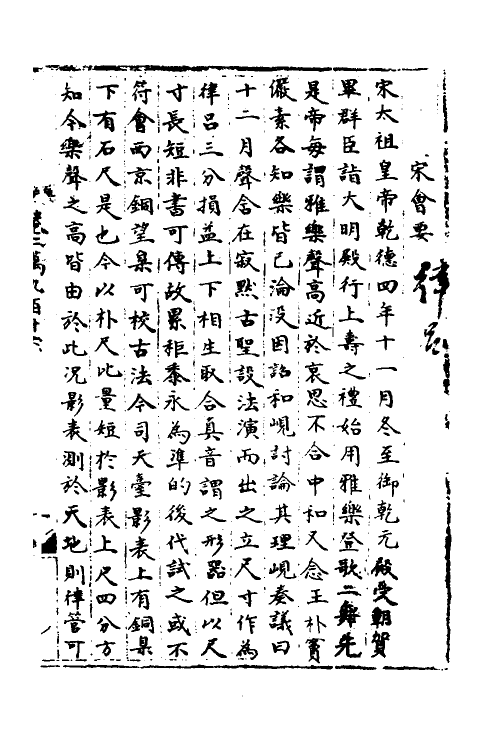 宋會要
律呂
宋太祖皇帝乾德四年十一月冬至御乾元殿受朝賀
畢群臣詣大明殿行上壽之禮始用雅樂登歌二舞先
是帝每謂雅樂聲高近於哀思不合中和又念王朴竇
儼素各知樂皆已淪没因詔和峴討論其理峴奏議曰
十二月聲含在寂默古聖設法演而出之立尺寸作為
律呂三分損益上下相生取合真音謂之形器但以尺
寸長短非書可傳故累秬黍永為準的後代試之或不
符會西京銅望臬可校古法今司天臺影表上有銅臬
下有石尺是也今以朴尺比量短於影表上尺四分方
知今樂聲之高皆由於此況影表測於天地則律管可